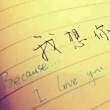 我想你
Because
I love you